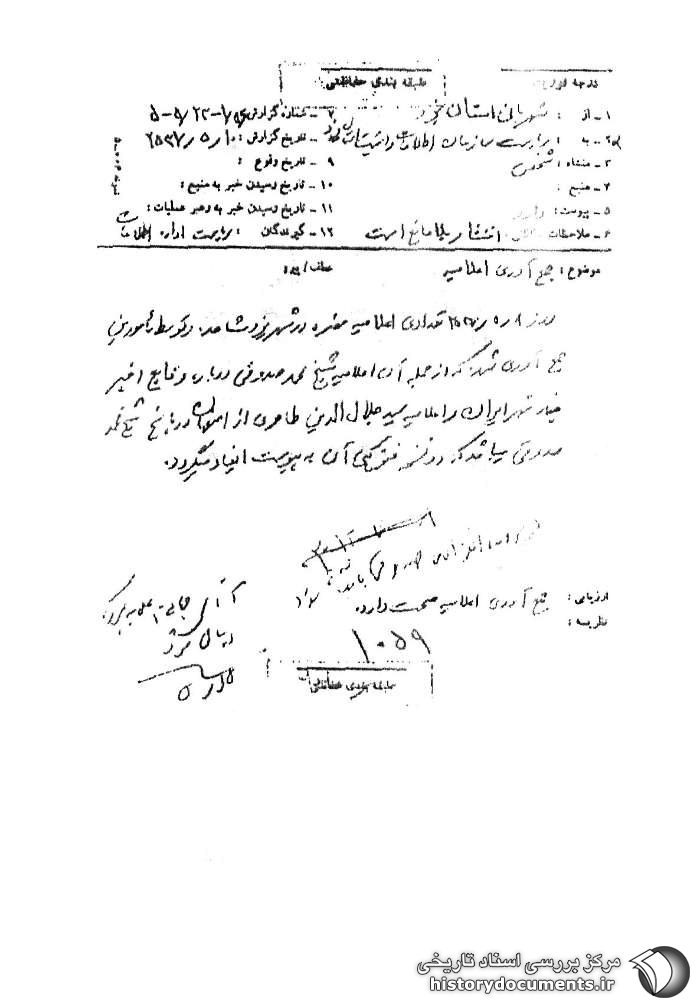 درجه فوریت :
طبقه بندی حفاظتی :
۱ - از : شهربانی استان یزد
۲ - به : ریاست سازمان اطلاعات و امنیت استان یزد
۳ - منشاء : شخص
۴ - منبع :
۵ - پیوست : دارد
۶ - ملاحظات انتشار بلامانع است
۷ - شماره گزارش
۸ - تاریخ گزارش : ۱۰ / ۵ / ۲۵۳۷
۹ - تاریخ وقوع :
۱۰ - تاریخ رسیدن خبر به منبع :
۱۱ - تاریخ رسیدن خبر به رهبر عملیات :
۱۲ - گیرندگان : ریاست اداره اطلاعات
موضوع : جمع آوری اعلامیه
عطف / پیرو :
روز ۸ / ۵ / ۲۵۳۷ تعدادی اعلامیه مضره در شهر یزد مشاهده و توسط مأمورین
جمع آوری شد که از جمله آن اعلامیه شیخ محمد صدوقی درباره وقایع اخیر
شهر ایران و اعلامیه سید جلال الدین طاهری از اصفهان در پاسخ شیخ محمد
صدوقی میباشد که دو نسخه فتوکپی آن به پیوست ایفاد میگردد.
ارزیابی : جمع آوری اعلامیه صحت دارد.
نظریه :
آقای
۱۰۵۹
طبقه بندی حفاظتی
مرکز بررسی اسناد تاریخی
historydocuments.ir